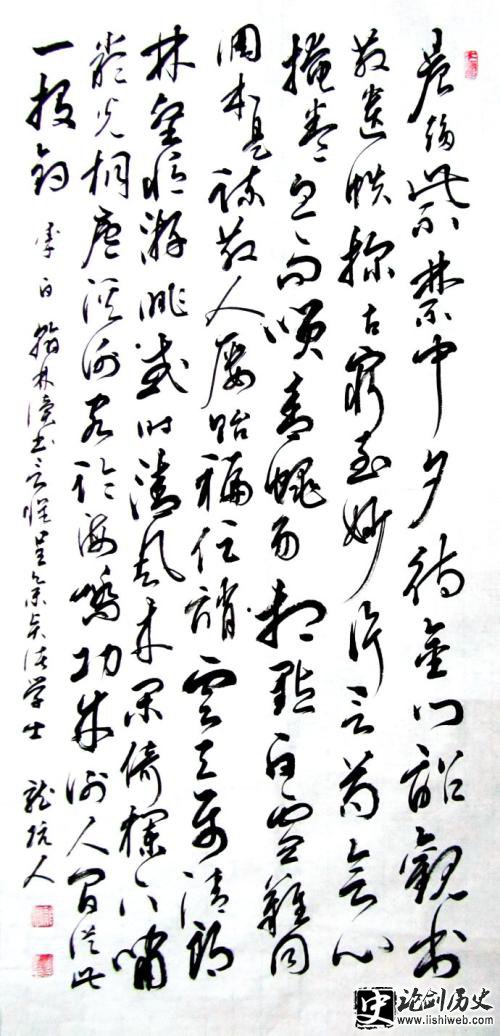 晨趋紫禁中夕待金门詔觀书
散遗帙探古穷至妙片言苟会心
掩卷忽而笑青蝇易相點白雪難同
调本是疏散人屡贻褊促誚云天属清朗
林壑忆游眺或时清风来闲倚栏下嘯
严光桐庐溪谢客临海嶠功成谢人间从此
一投钓 李白翰林读书言怀呈集贤诸学士 人
史 论剑历史
www.lishiweb.com